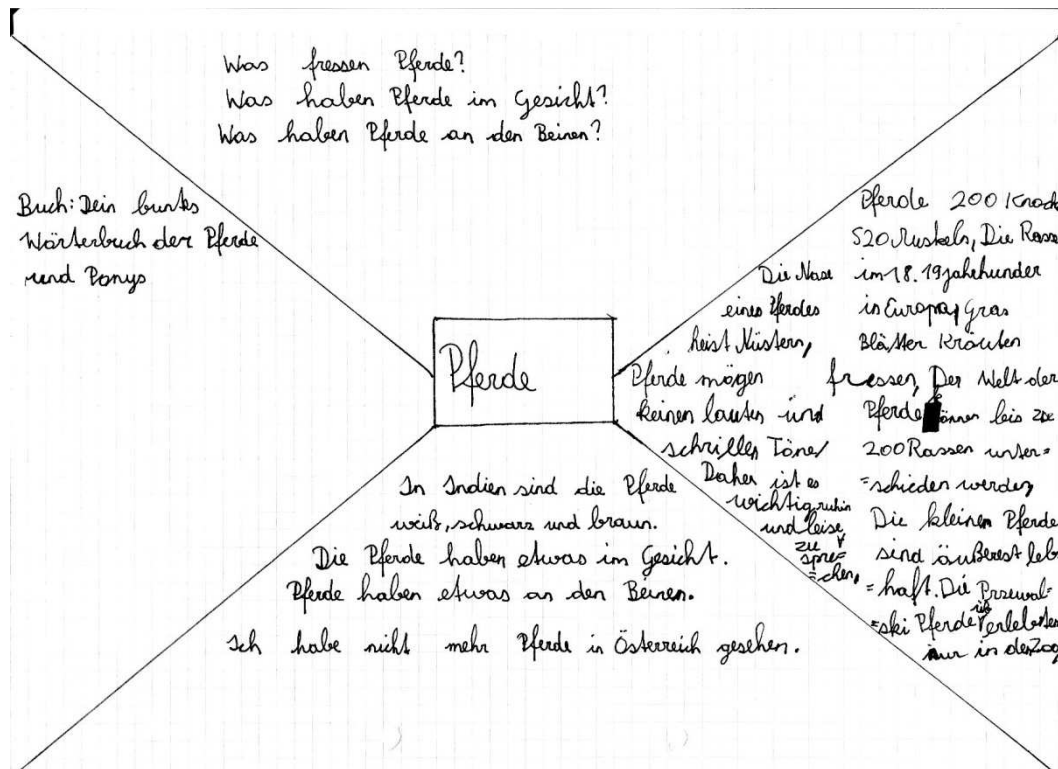 Was fressen Pferde?
Was haben Pferde im Gesicht?
Was haben Pferde an den Beinen?
Buch: Dein buntes
Wörterbuch der Pferde
und Ponys
Pferde
Die Nase
eines Pferdes
heist Nüstern,
Pferde mögen
keinen lauten und
schrillen Töne,
Daher ist es
wichtig ruhin
und leise
zu
spre=
=chen,
Pferde 200 Knoch
520 Muskels, Die Rass
im 18. 19 jahrhunder
in Europa, Gras
Blätter Kräuter
fressen, Der Welt der
Pferde können bis zu
200 Rassen unter=
=schieden werden,
Die kleinen Pferde
sind äußerest leb
=haft. Die Przewal=
=ski Pferde überlebten
nur in der Zoo
In Indien sind die Pferde
weiß, schwarz und braun.
Die Pferde haben etwas im Gesicht.
Pferde haben etwas an den Beinen.
Ich habe nicht mehr Pferde in Österreich gesehen.